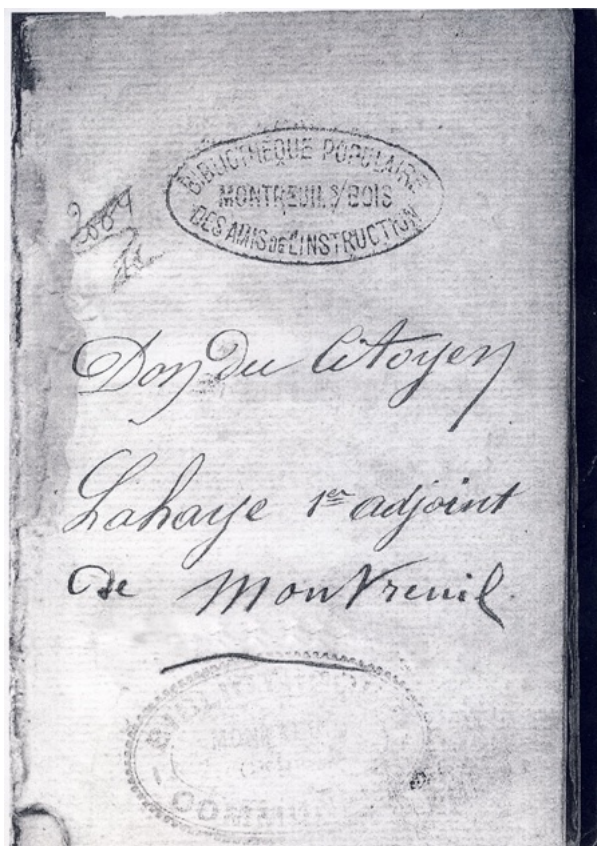 BIBLIOTHÈQUE POPULAIRE
MONTREUIL S/BOIS
DES AMIS DE L'INSTRUCTION
2089
Don du Citoyen
Lahaye 1er adjoint
de Montreuil.